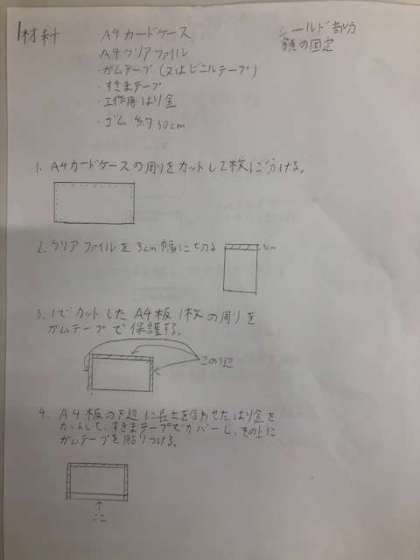 材料
A4カードケース
A4クリアファイル
・ガムテープ(又はビニルテープ)
・すきまテープ
・工作用はり金
・ゴム 約30cm
シールド部分
顔の固定
1. A4カードケースの周りをカットして2枚に分ける。
2. クリアファイルを3cm幅に切る
3cm
3. 1でカットしたA4板1枚の周りを
ガムテープで保護する。
この3辺
4. A4板の下辺に長さを合わせたはり金を
カットして、すきまテープでカバーし、その上に
ガムテープを貼りつける。
↑
ここ